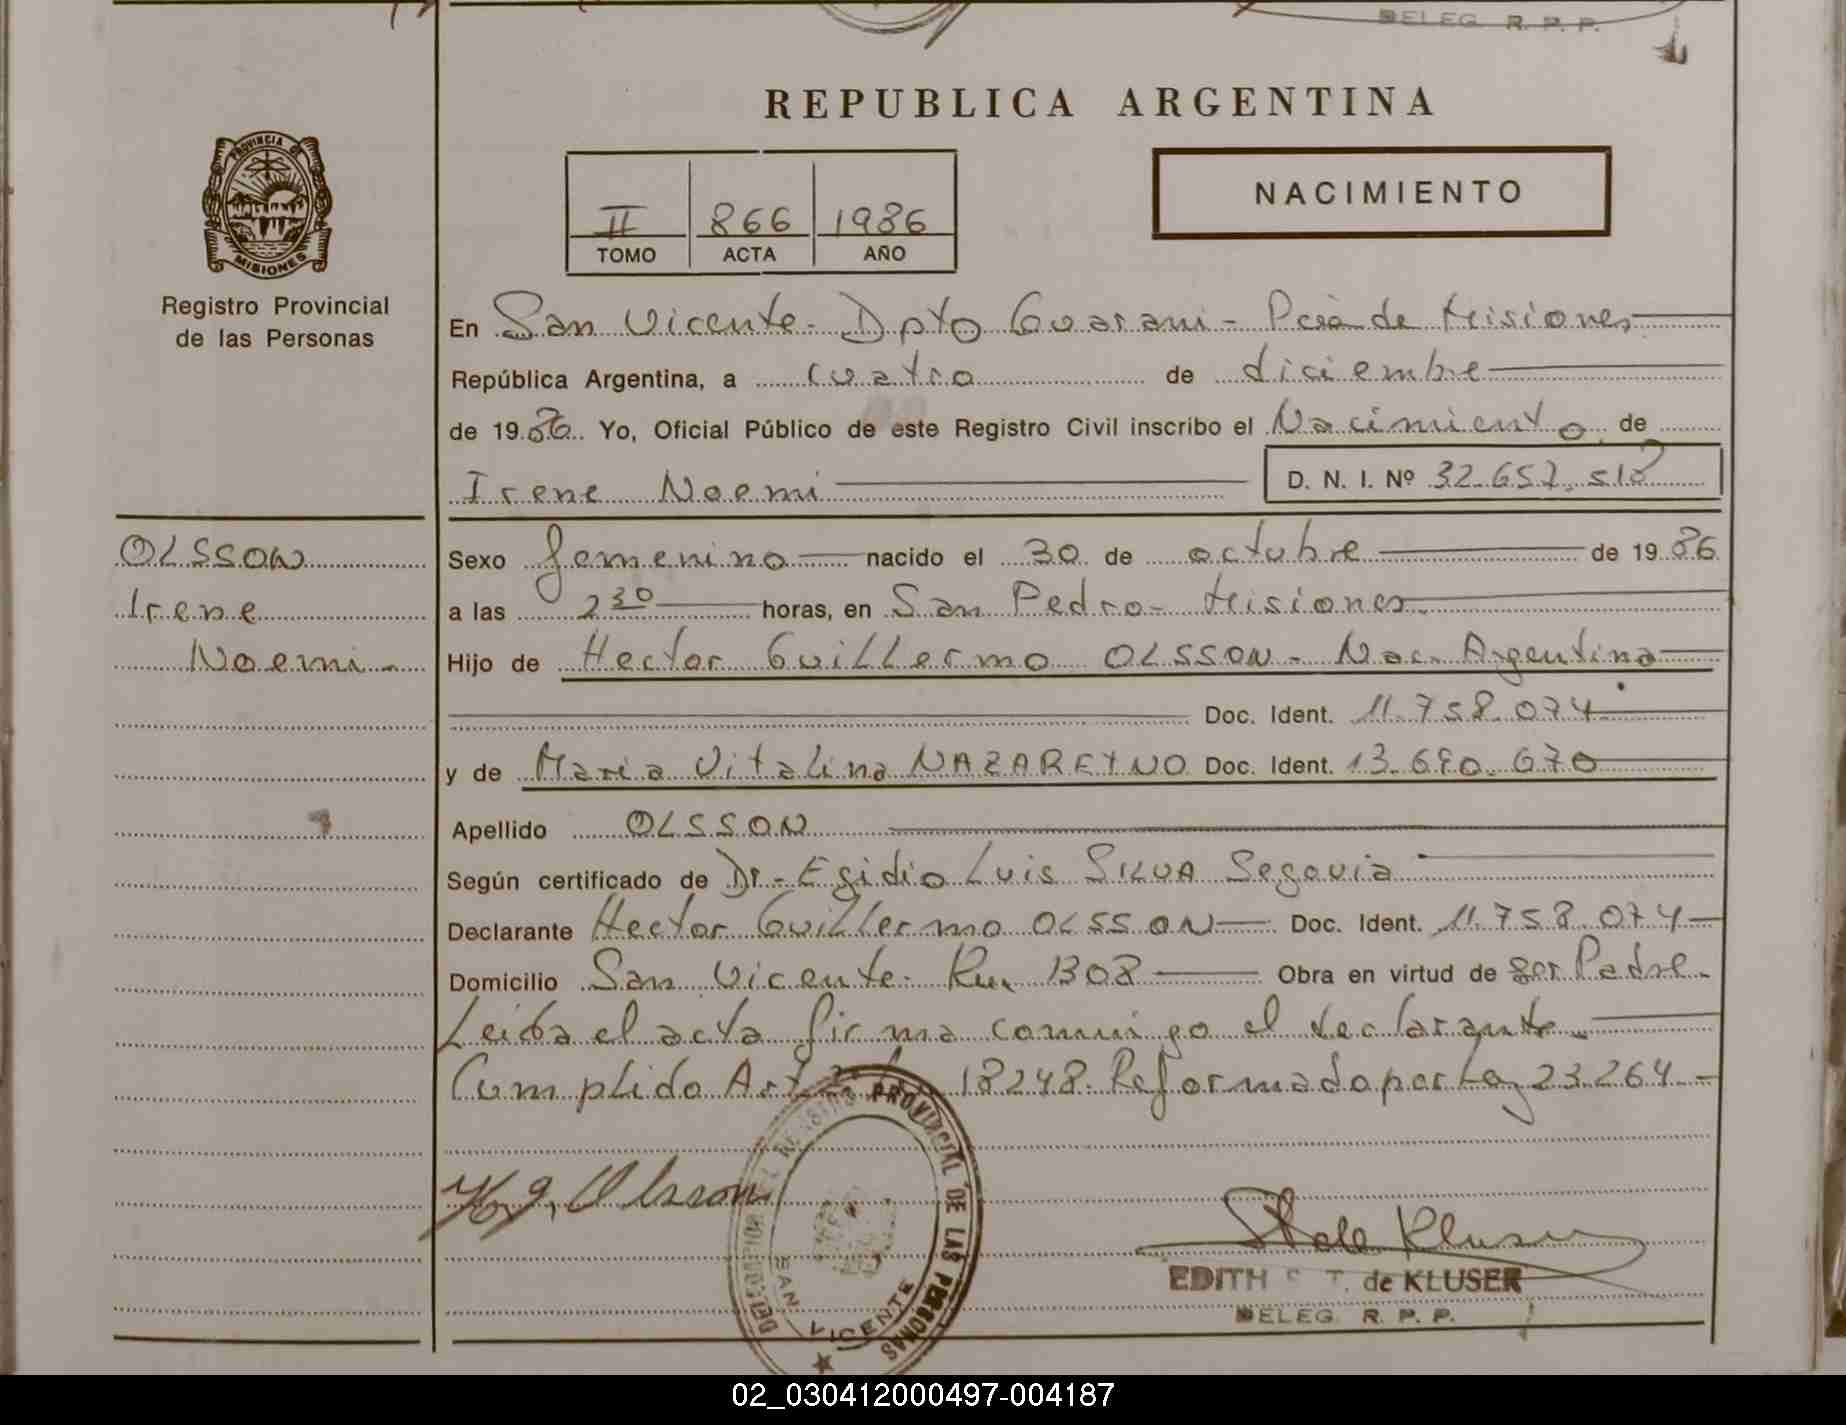 DELEG. R. P. P.
REPUBLICA ARGENTINA
PROVINCIA DE
MISIONES
Registro Provincial
de las Personas
II 866 1986
TOMO ACTA AÑO
NACIMIENTO
En San Vicente - Dpto Guarani - Pcia de Misiones
República Argentina, a cuatro de diciembre
de 1986. Yo, Oficial Público de este Registro Civil inscribo el Nacimiento de
Irene Noemi D. N. I. Nº 32.657.518
OLSSON
Irene
Noemi
Sexo femenino nacido el 30 de octubre de 1986
a las 2 30 horas, en San Pedro - Misiones
Hijo de Hector Guillermo OLSSON - Nac. Argentina
Doc. Ident. 11.758.074
y de Maria Vitalina NAZARETNO Doc. Ident. 13.690.670
Apellido OLSSON
Según certificado de Dr. Egidio Luis SILVA Segovia
Declarante Hector Guillermo OLSSON Doc. Ident. 11.758.074
Domicilio San Vicente - Km 1308 Obra en virtud de ser Padre.
Leida el acta firma conmigo el declarante.
Cumplido Art. 18248. Reformado por Ley 23.264.-
H. G. Olsson
DELEGACION DEL REGISTRO PROVINCIAL DE LAS PERSONAS
SAN VICENTE
EDITH T. de KLUSER
DELEG. R. P. P.
02_030412000497-004187